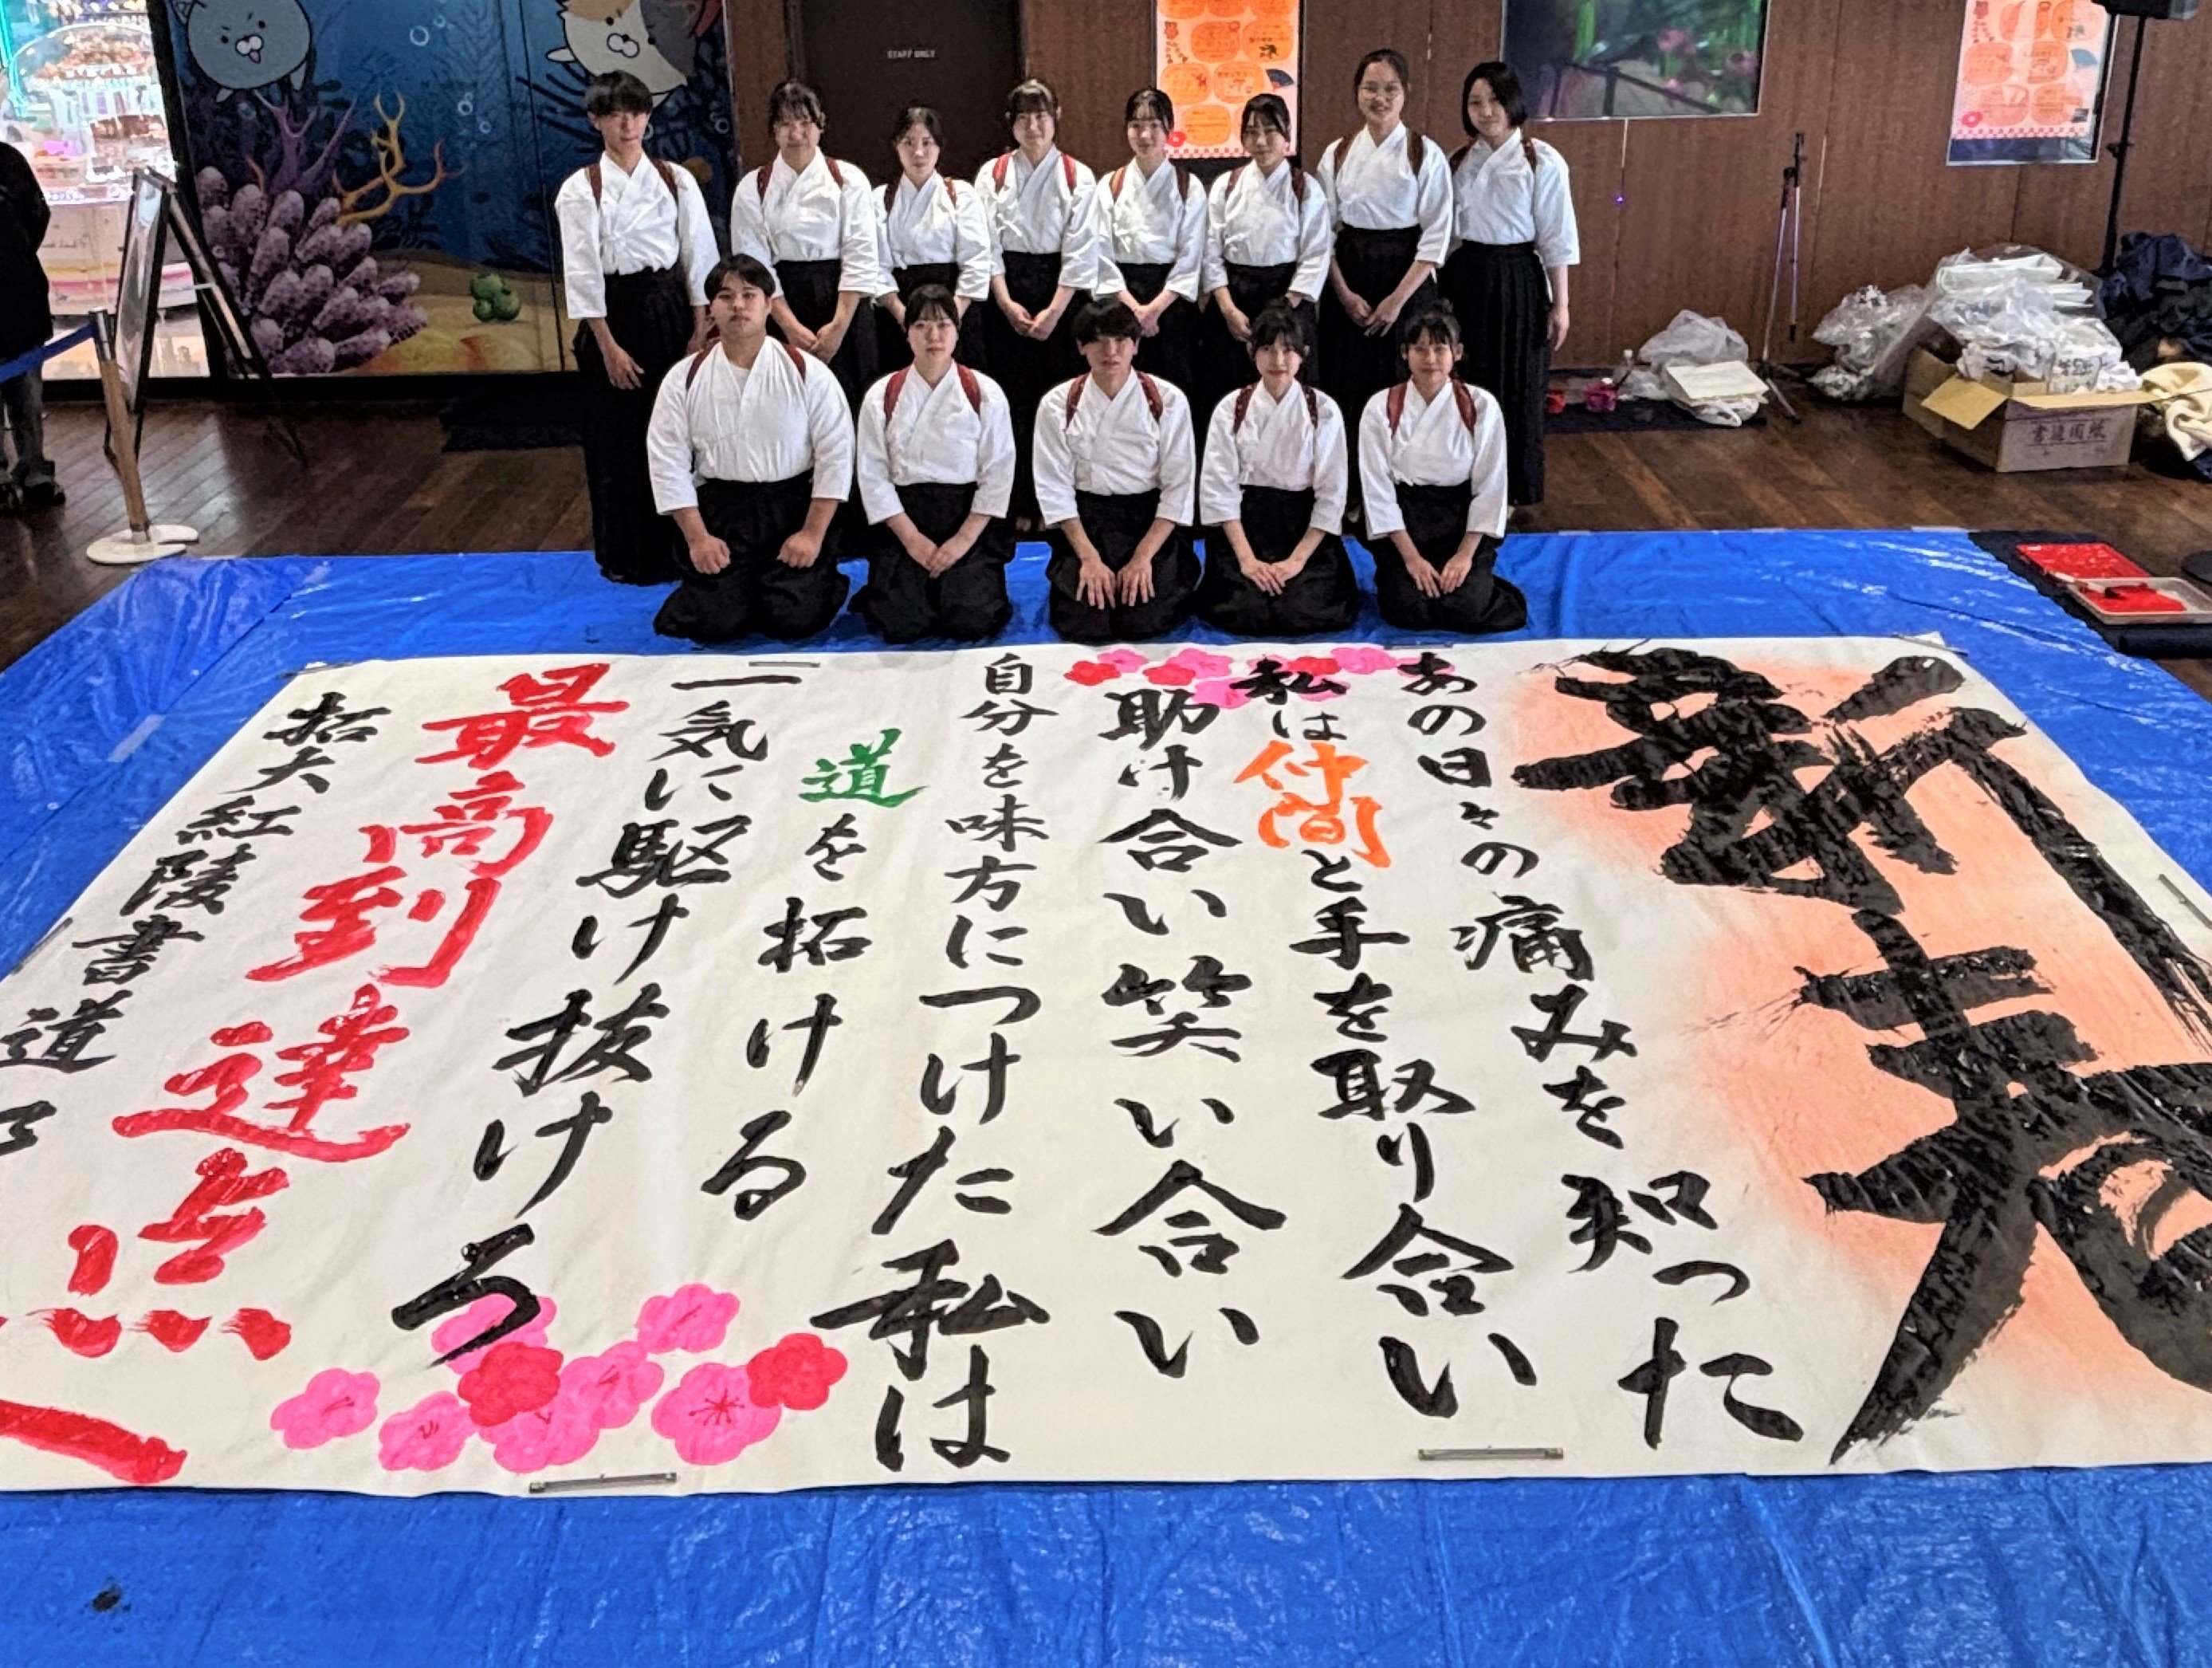 新春
あの日々の痛みを知った
私は仲間と手を取り合い
助け合い笑い合い
自分を味方につけた私は
道を拓ける
一気に駆け抜けろ
最高到達点
拓大紅陵書道
STAFF ONLY
書道用紙